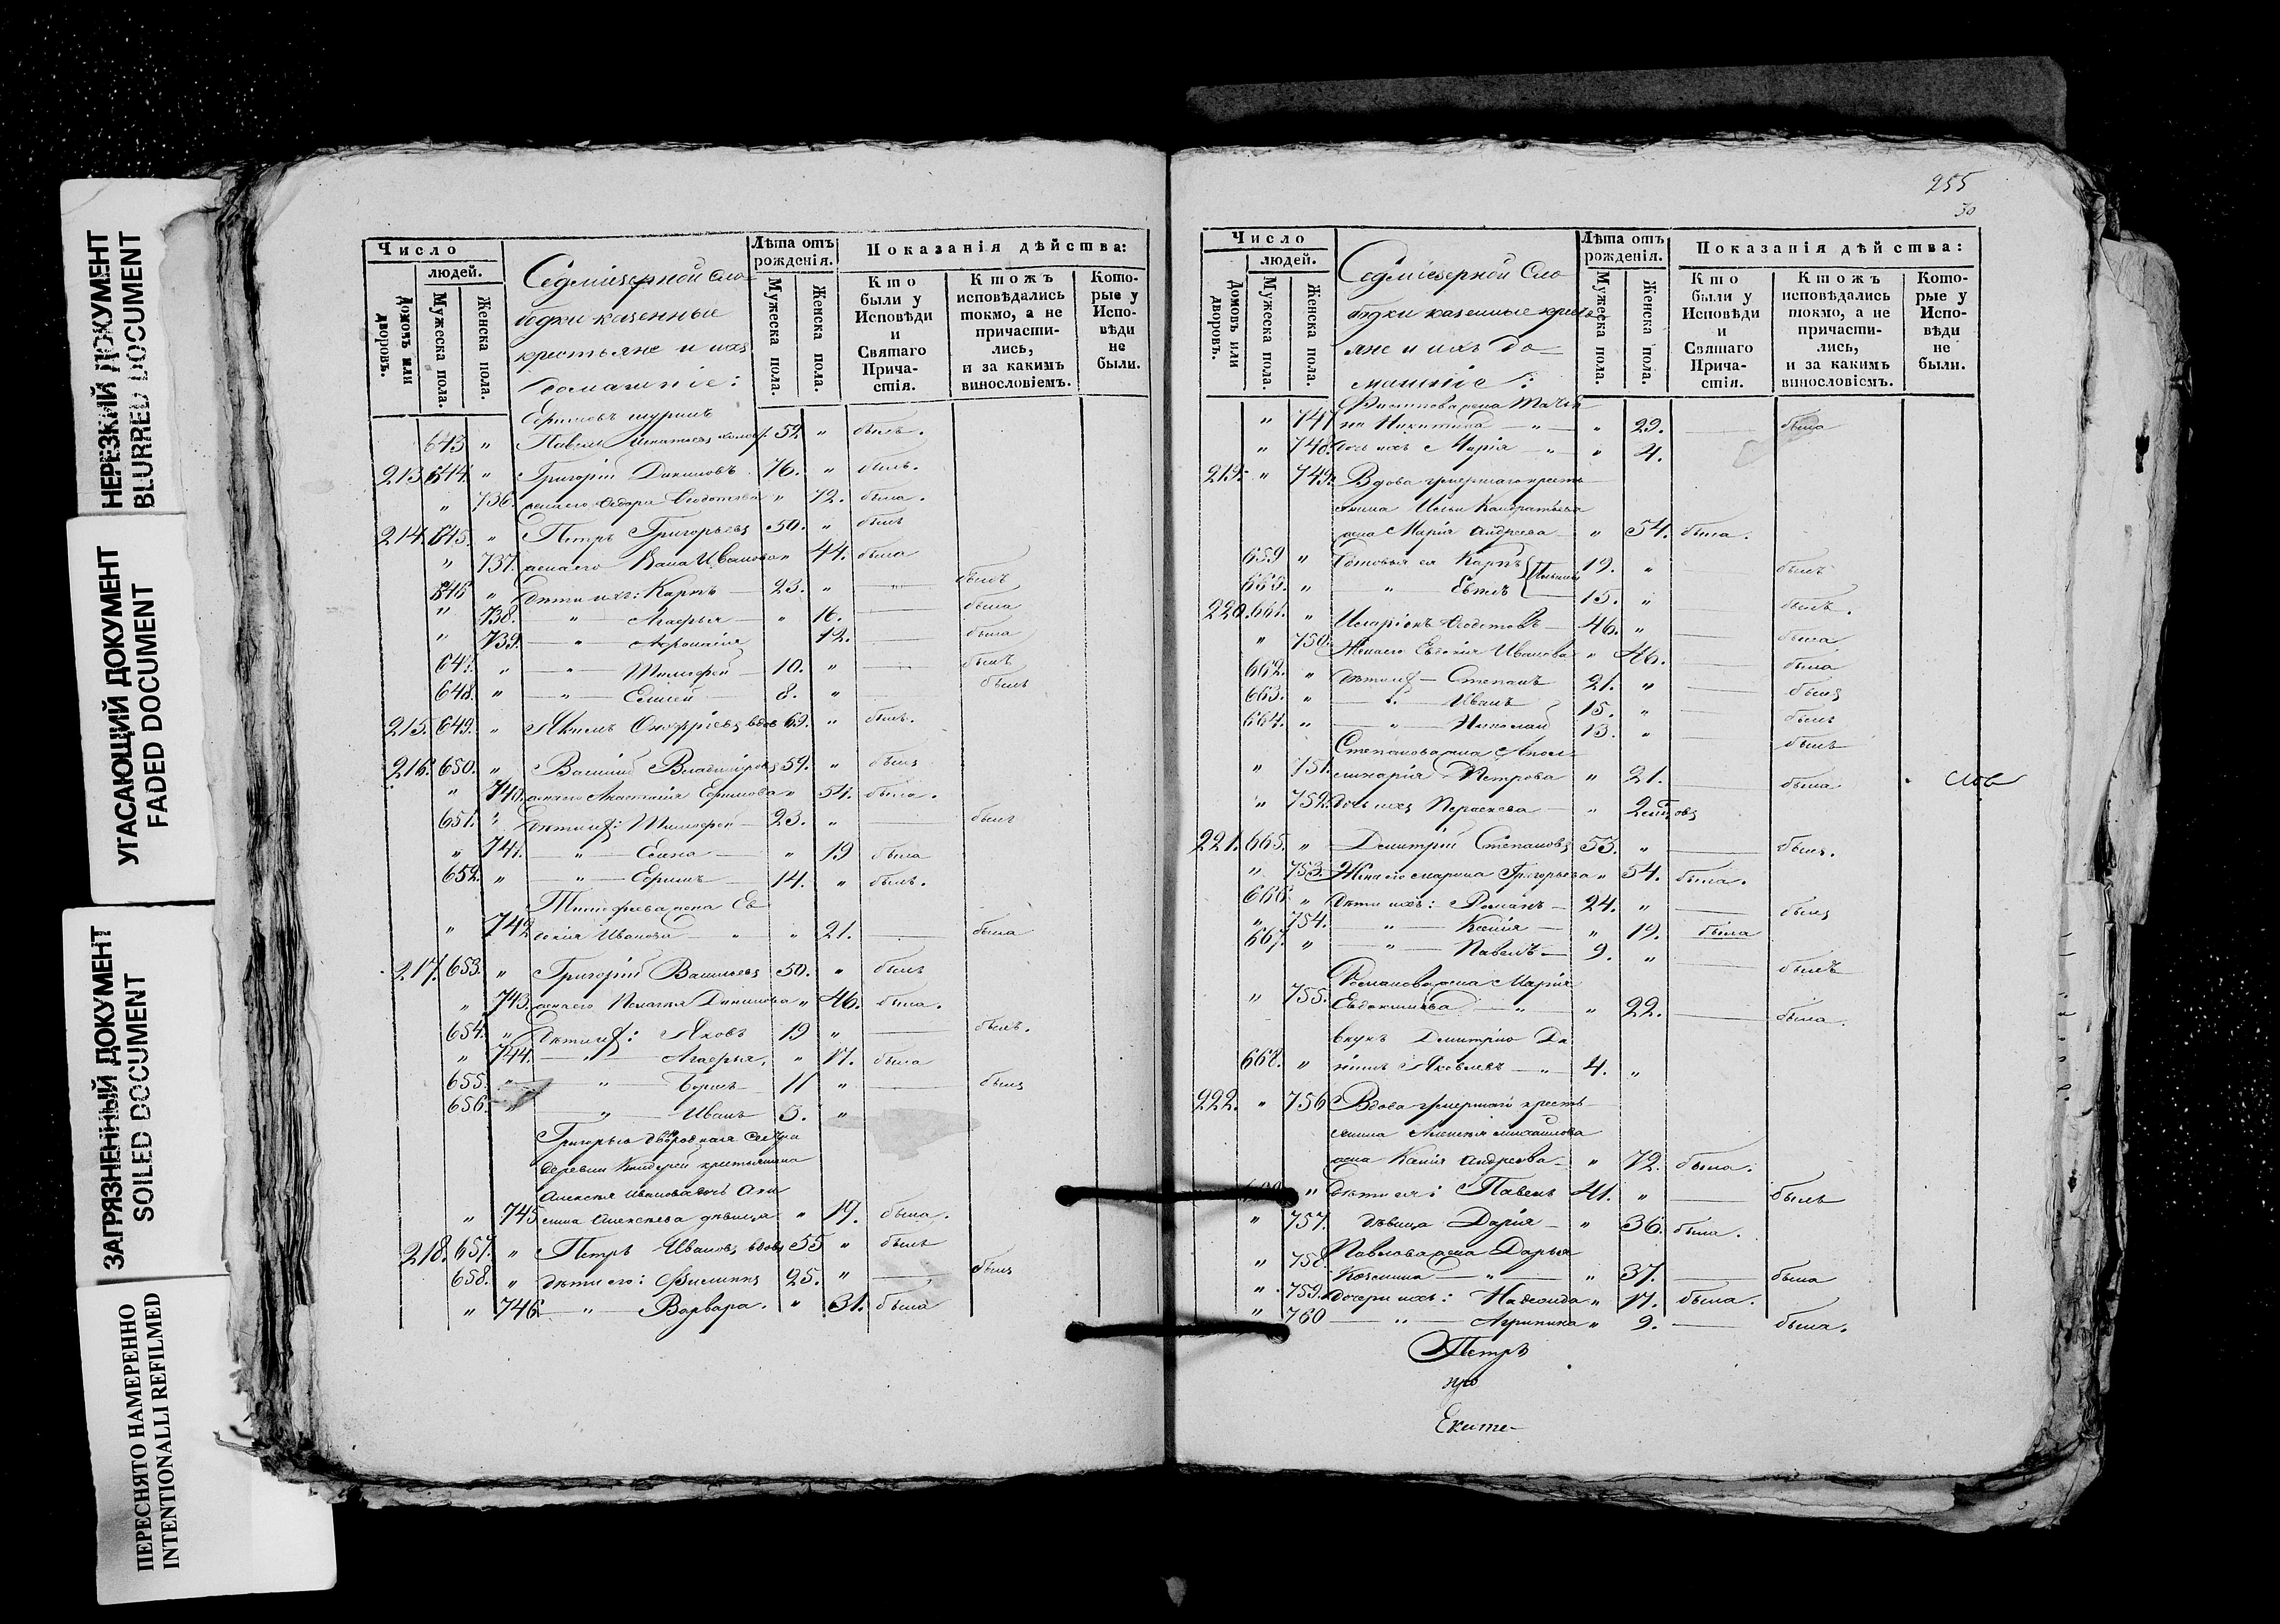 НЕРЕЗКИЙ ДОКУМЕНТ
BLURRED DOCUMENT
УГАСАЮЩИЙ ДОКУМЕНТ
FADED DOCUMENT
ЗАГРЯЗНЕННЫЙ ДОКУМЕНТ
SOILED DOCUMENT
ПЕРЕСНЯТО НАМЕРЕННО
INTENTIONALLI REFILMED
Число
людей.
Домовъ или дворовъ.
Мужеска пола.
Женска пола.
Седміезерной Сло-
бодки казенные
крестьяне и ихъ
домашніе:
Лѣта отъ рожденія.
Мужеска пола.
Женска пола.
Показанія дѣйства:
Кто были у Исповѣди и Святаго Причастія.
Ктожъ исповѣдались токмо, а не причастились, и за какимъ винословіемъ.
Которые у Исповѣди не были.
Ефимовъ шуринъ
643. " Павелъ 52 " былъ.
213. 644. " Григорій Даниловъ 76. " былъ.
" 736. жена его Ѳедотова " 72. была.
214. 645. " Петръ Григорьевъ 50. " былъ
" 737. жена его Иванова " 44. была
646 " Дѣти ихъ: Карпъ 23. " — былъ
" 738. " Агафья " 16. — была
" 739. " Афонасія 12. — была
647. " " Тимофей 10. " — былъ
648. " " Елисей 8. " былъ
215. 649. " Якимъ Онофріевъ вдов 69. " былъ.
216. 650. " Василій Владиміровъ 59. " былъ
" 740. жена его Анастасія Ефимова " 54. была.
651. " Дѣти ихъ: Тимофей 23. " — былъ
" 741. " Елена " 19 была
652. " " Ефимъ 14. " былъ.
Тимофеева жена Ев
" 742 докія Иванова " " 21. — была
217. 653. " Григорій Васильевъ 50. " былъ
" 743. жена его Пелагея Данилова " 46. была.
654. " Дѣти ихъ: Яковъ 19 " — былъ.
" 744. " Агафья, " 17. была
655. " " 11 " — былъ
656. " " Иванъ 3. "
Григорью двоюродная сестра
деревни крестьянина
Алексея Иванова дочь Аки
" 745 лина Алексеева дѣвица " 19. была.
218. 657. " Петръ Ивановъ вдовъ 55 " былъ
658. " Дѣти его: Филиппъ 25. " — былъ
" 746 " Варвара. " 31. была
255
30
Число
людей.
Домовъ или дворовъ.
Мужеска пола.
Женска пола.
Седміезерной Сло-
бодки казенные кресть-
яне и ихъ до-
машніе:
Лѣта отъ рожденія.
Мужеска пола.
Женска пола.
Показанія дѣйства:
Кто были у Исповѣди и Святаго Причастія.
Ктожъ исповѣдались токмо, а не причастились, и за какимъ винословіемъ.
Которые у Исповѣди не были.
Филипова жена Татья
" 747 на Никитина " " 29. — была
" 748. Дочь ихъ Марія " " 4.
219. " 749. Вдова умершаго кресть
янина Ильи Кандратьева
жена Марія Андреева " 54. была.
659 " Сыновья ея Карпъ 19. " былъ
660. " " 15. " былъ.
220. 661. " Иларіонъ Ѳедотовъ 46. " была
" 750. Жена его Евдокія Иванова " 46. — была
662. " Дѣти ихъ Степанъ 21. " — былъ
663. " " Иванъ 15. " — былъ
664. " " Николай 13. " — былъ
Степанова жена Апол
" 751. линарія Петрова " 21. была
" 752. Дочь ихъ Пераскева " 2 месяцовъ
221. 665. " Димитрій Степановъ 53. " — былъ.
" 753. Жена его Марина Григорьева " 54. была.
666. " Дѣти ихъ: Романъ 24. " — былъ
" 754. " Ксенія " 19. была
667. " " Павелъ 9. " — былъ
Романова жена Марія
" 755. Евдокимова " " 22. — была.
внукъ Димитрію Да
668. " ніилъ Яковлевъ " 4. "
222. " 756 Вдова умершаго кресть
янина Алексея Михайлова
жена Ксенія Андреева " 72. была.
" Дѣти ея: Павелъ 41. " — былъ
" 757. дѣвица Дарія " 36. была.
Павлова жена Дарья
" 758. Козмина " " 37. — была
" 759. Дочери ихъ: Надежда " 17. была.
" 760 " Агрипина " 9. — была.
Петръ
Екате-